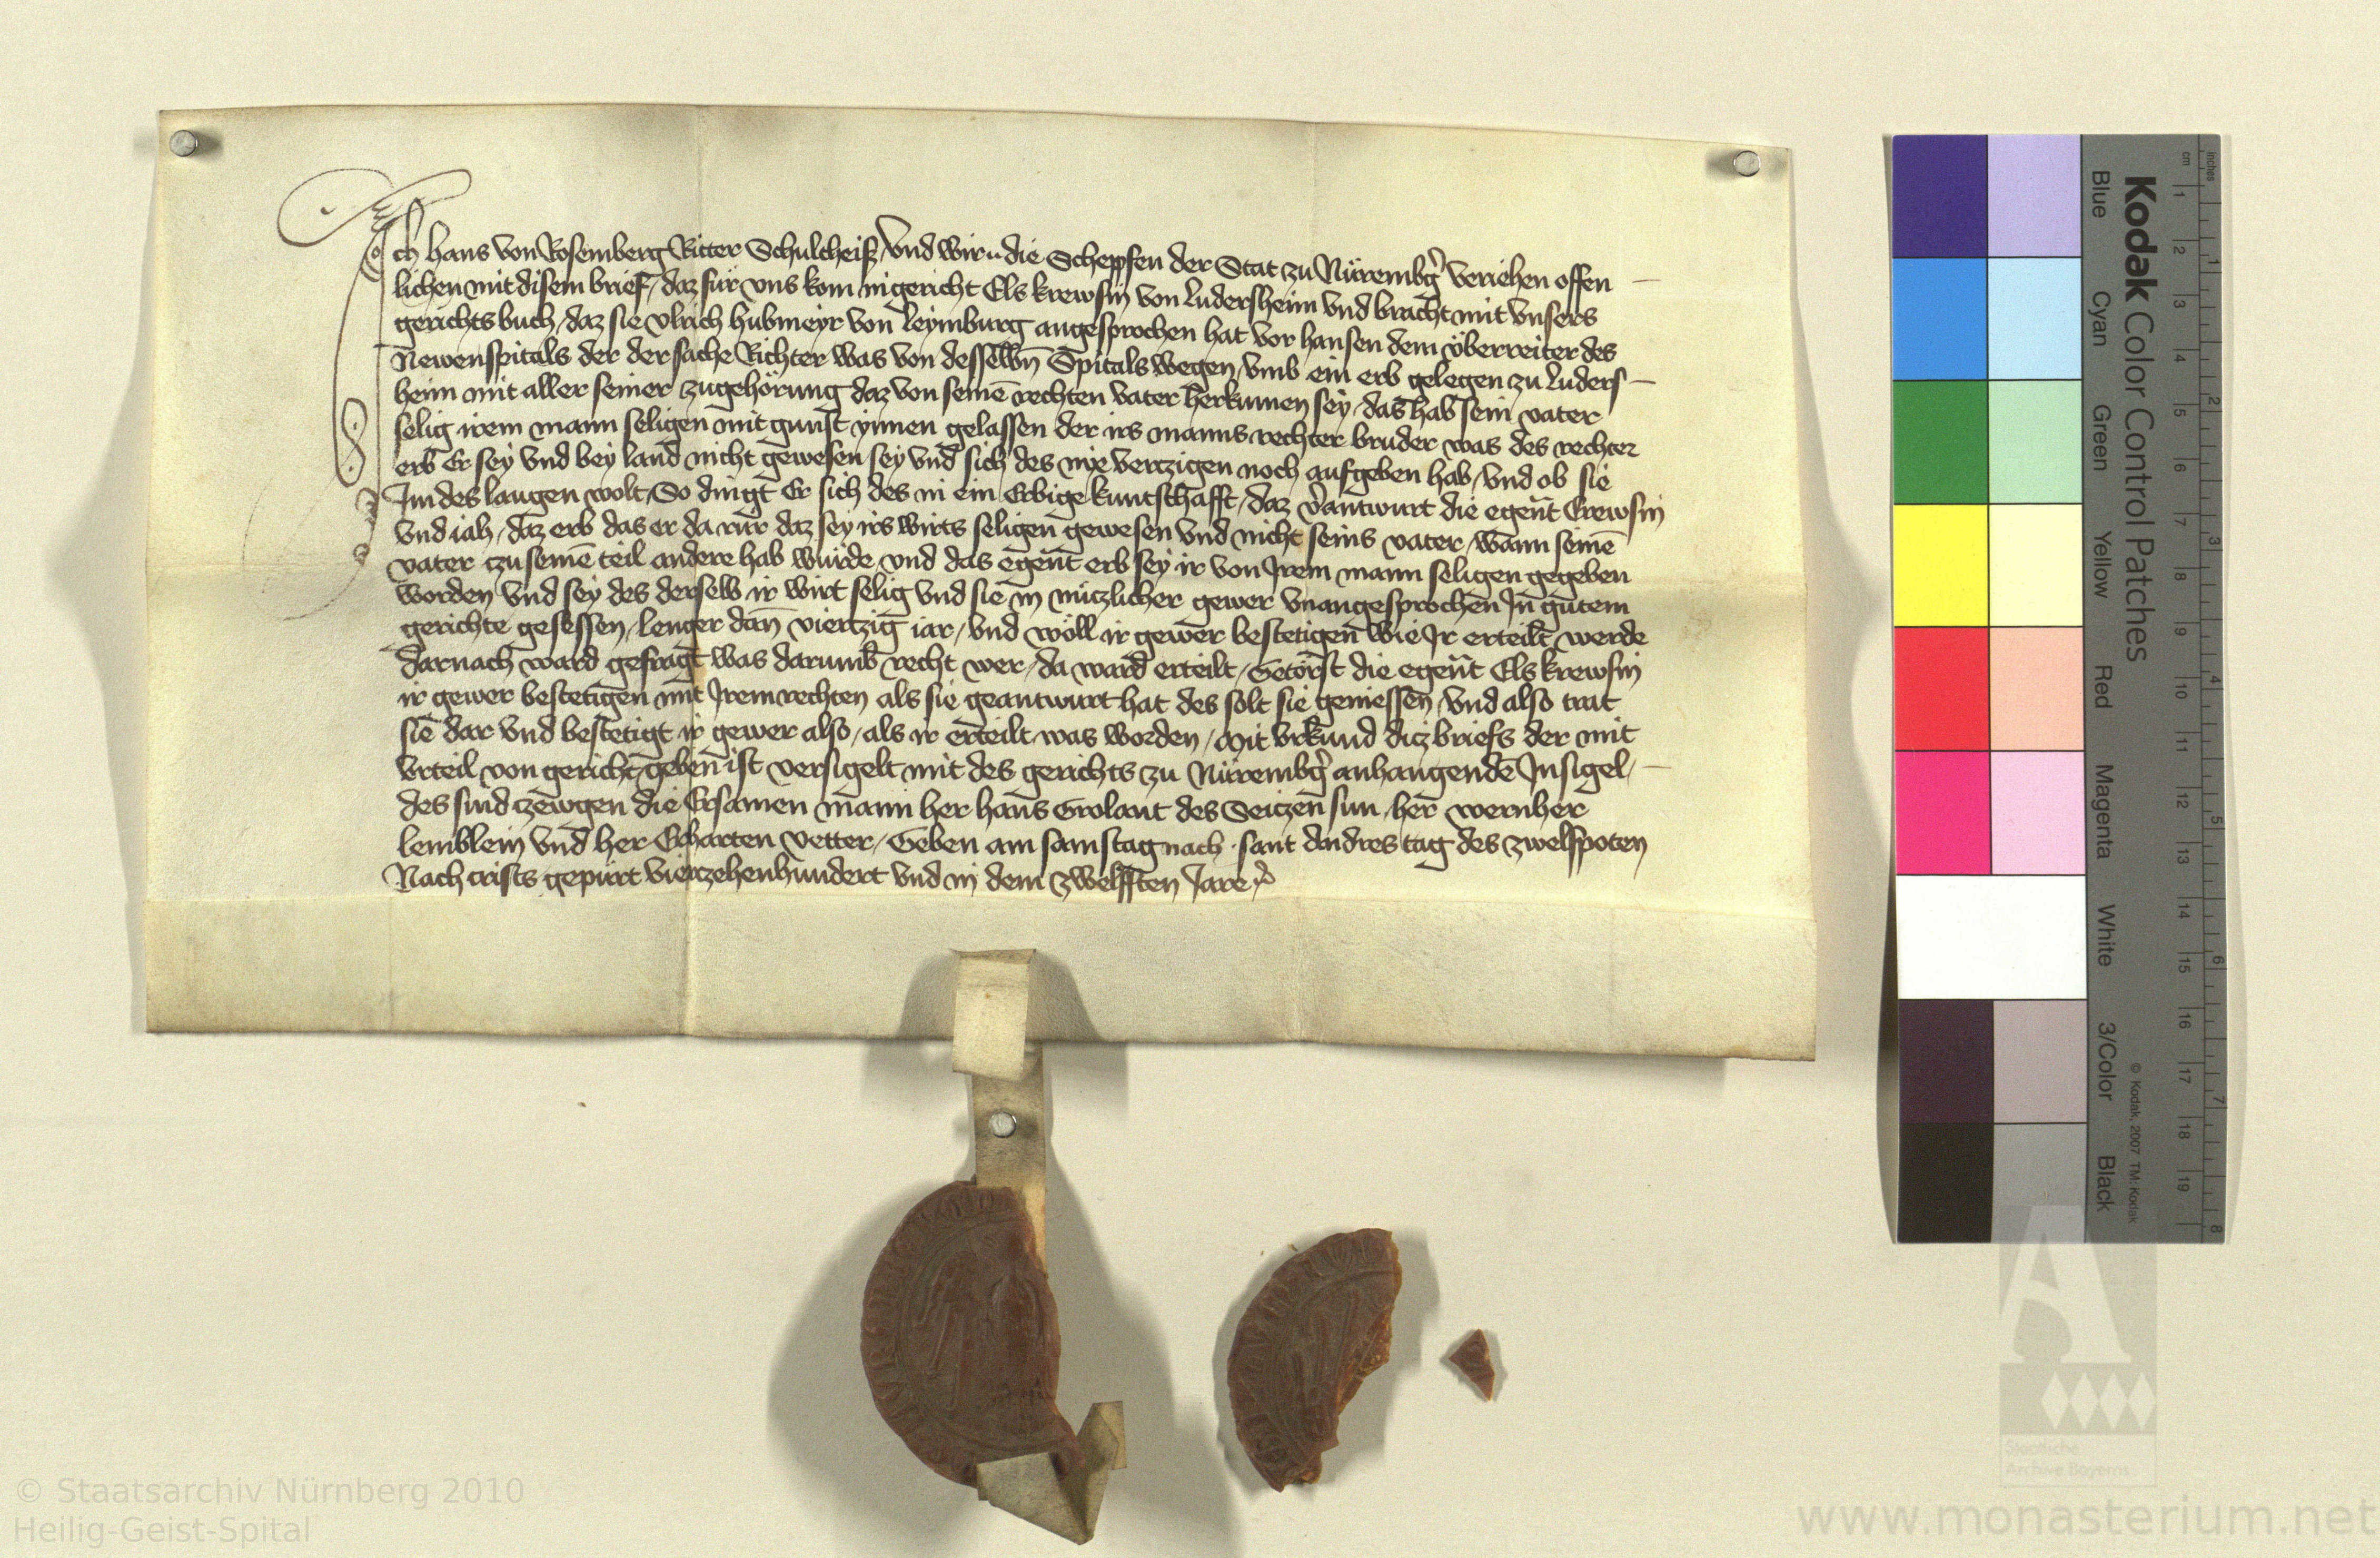 Ich Hans von Rosemberg Ritter Schultheiß / Vnd wir die Schepfen der Stat zu Nüremb̉g veriehen offen
lichen mit disem brief / daz für vns kom in gericht Els krewsin von Ludersheim vnd bracht mit vnsers
gerichts buch / daz sie vlrich hubmeyr von Leymburg angesprochen hat vor hansen dem vberreiter des
Newenspitals der der sache Richter was von desselbn̄ Spitals wegen / vmb ein erb gelegen zu Luders
heim mit aller seiner zugehörung daz von seinē rechten vater herkumen sey / das hab sein vater
selig irem mann seligen mit gunst ynnen gelassen der irs manns rechter bruder was des rechter
erb Er sey vnd bey land nicht gewesen sey vnd sich des nye vertzigen noch aufgeben hab / vnd ob sie
Im des laugen wolt / So dingt Er sich des in ein Erbige kuntschafft / daz v̉antwurt die egen̄t Crewsin
vnd iah / daz erb das er da rür daz sey irs wirts seligen gewesen vnd nicht seins vater / wann seinē
vater zu seinē teil andere hab würde vnd das egen̄t erb sey ir von Irem mann seligen gegeben
worden vnd sey des derselb ir wirt selig vnd sie in nützlicher gewer vnangesprochen In gutem
gerichte gesessen / lenger dan̄ viertzig iar / vnd wöll ir gewer bestetigen wie Ir erteilt werde
darnach ward gefragt was darumb recht wer / da ward erteilt / Getörst die egen̄t Els krewsin
ir gewer bestetigen mit Irem rechten als sie geantwurt hat des solt sie geniessen / vnd also trat
sie dar vnd bestetigt ir gewer also / als ir erteilt was worden / Mit vrkund ditz briefs der mit
vrteil von gericht geben ist versigelt mit des gerichts zu Nüremb̉g anhangendē Insigel /
des sind czewgen die Ersamen mann her hans Grolant des Seitzen sun / her wernher
lemblein vnd her Erharten vetter / Geben am samstag nach sant Andres tag des zwelfpoten
Nach crists gepürt vierzehenhundert vnd in dem zwelfften Jare
Kodak Color Control Patches
Blue Cyan Green Yellow Red Magenta White 3/Color Black
© Kodak, 2007 TM: Kodak
inches 1 2 3 4 5 6 7 8
cm 1 2 3 4 5 6 7 8 9 10 11 12 13 14 15 16 17 18 19
Staatliche
Archive Bayerns
© Staatsarchiv Nürnberg 2010
Heilig-Geist-Spital
www.monasterium.net